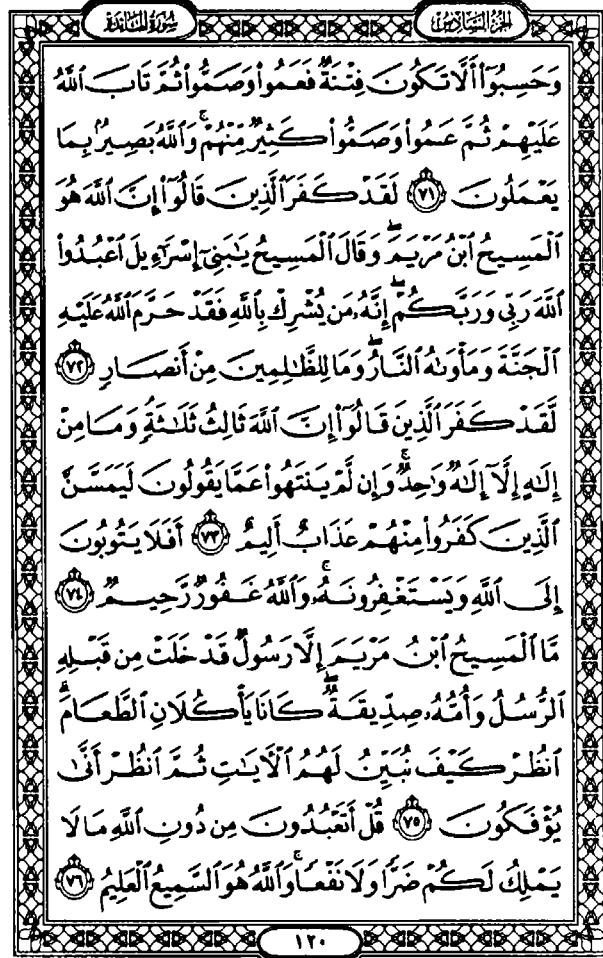 سُورَةُ المَائدَة
الجزءُ السَّادِسُ
وَحَسِبُوٓا۟ أَلَّا تَكُونَ فِتْنَةٌ فَعَمُوا۟ وَصَمُّوا۟ ثُمَّ تَابَ ٱللَّهُ
عَلَيْهِمْ ثُمَّ عَمُوا۟ وَصَمُّوا۟ كَثِيرٌ مِّنْهُمْ ۚ وَٱللَّهُ بَصِيرٌۢ بِمَا
يَعْمَلُونَ ﴿٧١﴾ لَقَدْ كَفَرَ ٱلَّذِينَ قَالُوٓا۟ إِنَّ ٱللَّهَ هُوَ
ٱلْمَسِيحُ ٱبْنُ مَرْيَمَ ۖ وَقَالَ ٱلْمَسِيحُ يَٰبَنِىٓ إِسْرَٰٓءِيلَ ٱعْبُدُوا۟
ٱللَّهَ رَبِّى وَرَبَّكُمْ ۖ إِنَّهُۥ مَن يُشْرِكْ بِٱللَّهِ فَقَدْ حَرَّمَ ٱللَّهُ عَلَيْهِ
ٱلْجَنَّةَ وَمَأْوَىٰهُ ٱلنَّارُ ۖ وَمَا لِلظَّٰلِمِينَ مِنْ أَنصَارٍ ﴿٧٢﴾
لَّقَدْ كَفَرَ ٱلَّذِينَ قَالُوٓا۟ إِنَّ ٱللَّهَ ثَالِثُ ثَلَٰثَةٍ ۘ وَمَا مِنْ
إِلَٰهٍ إِلَّآ إِلَٰهٌ وَٰحِدٌ ۚ وَإِن لَّمْ يَنتَهُوا۟ عَمَّا يَقُولُونَ لَيَمَسَّنَّ
ٱلَّذِينَ كَفَرُوا۟ مِنْهُمْ عَذَابٌ أَلِيمٌ ﴿٧٣﴾ أَفَلَا يَتُوبُونَ
إِلَى ٱللَّهِ وَيَسْتَغْفِرُونَهُۥ ۚ وَٱللَّهُ غَفُورٌ رَّحِيمٌ ﴿٧٤﴾
مَّا ٱلْمَسِيحُ ٱبْنُ مَرْيَمَ إِلَّا رَسُولٌ قَدْ خَلَتْ مِن قَبْلِهِ
ٱلرُّسُلُ وَأُمُّهُۥ صِدِّيقَةٌ ۖ كَانَا يَأْكُلَانِ ٱلطَّعَامَ ۗ
ٱنظُرْ كَيْفَ نُبَيِّنُ لَهُمُ ٱلْـَٔايَٰتِ ثُمَّ ٱنظُرْ أَنَّىٰ
يُؤْفَكُونَ ﴿٧٥﴾ قُلْ أَتَعْبُدُونَ مِن دُونِ ٱللَّهِ مَا لَا
يَمْلِكُ لَكُمْ ضَرًّا وَلَا نَفْعًا ۚ وَٱللَّهُ هُوَ ٱلسَّمِيعُ ٱلْعَلِيمُ ﴿٧٦﴾
١٢٠